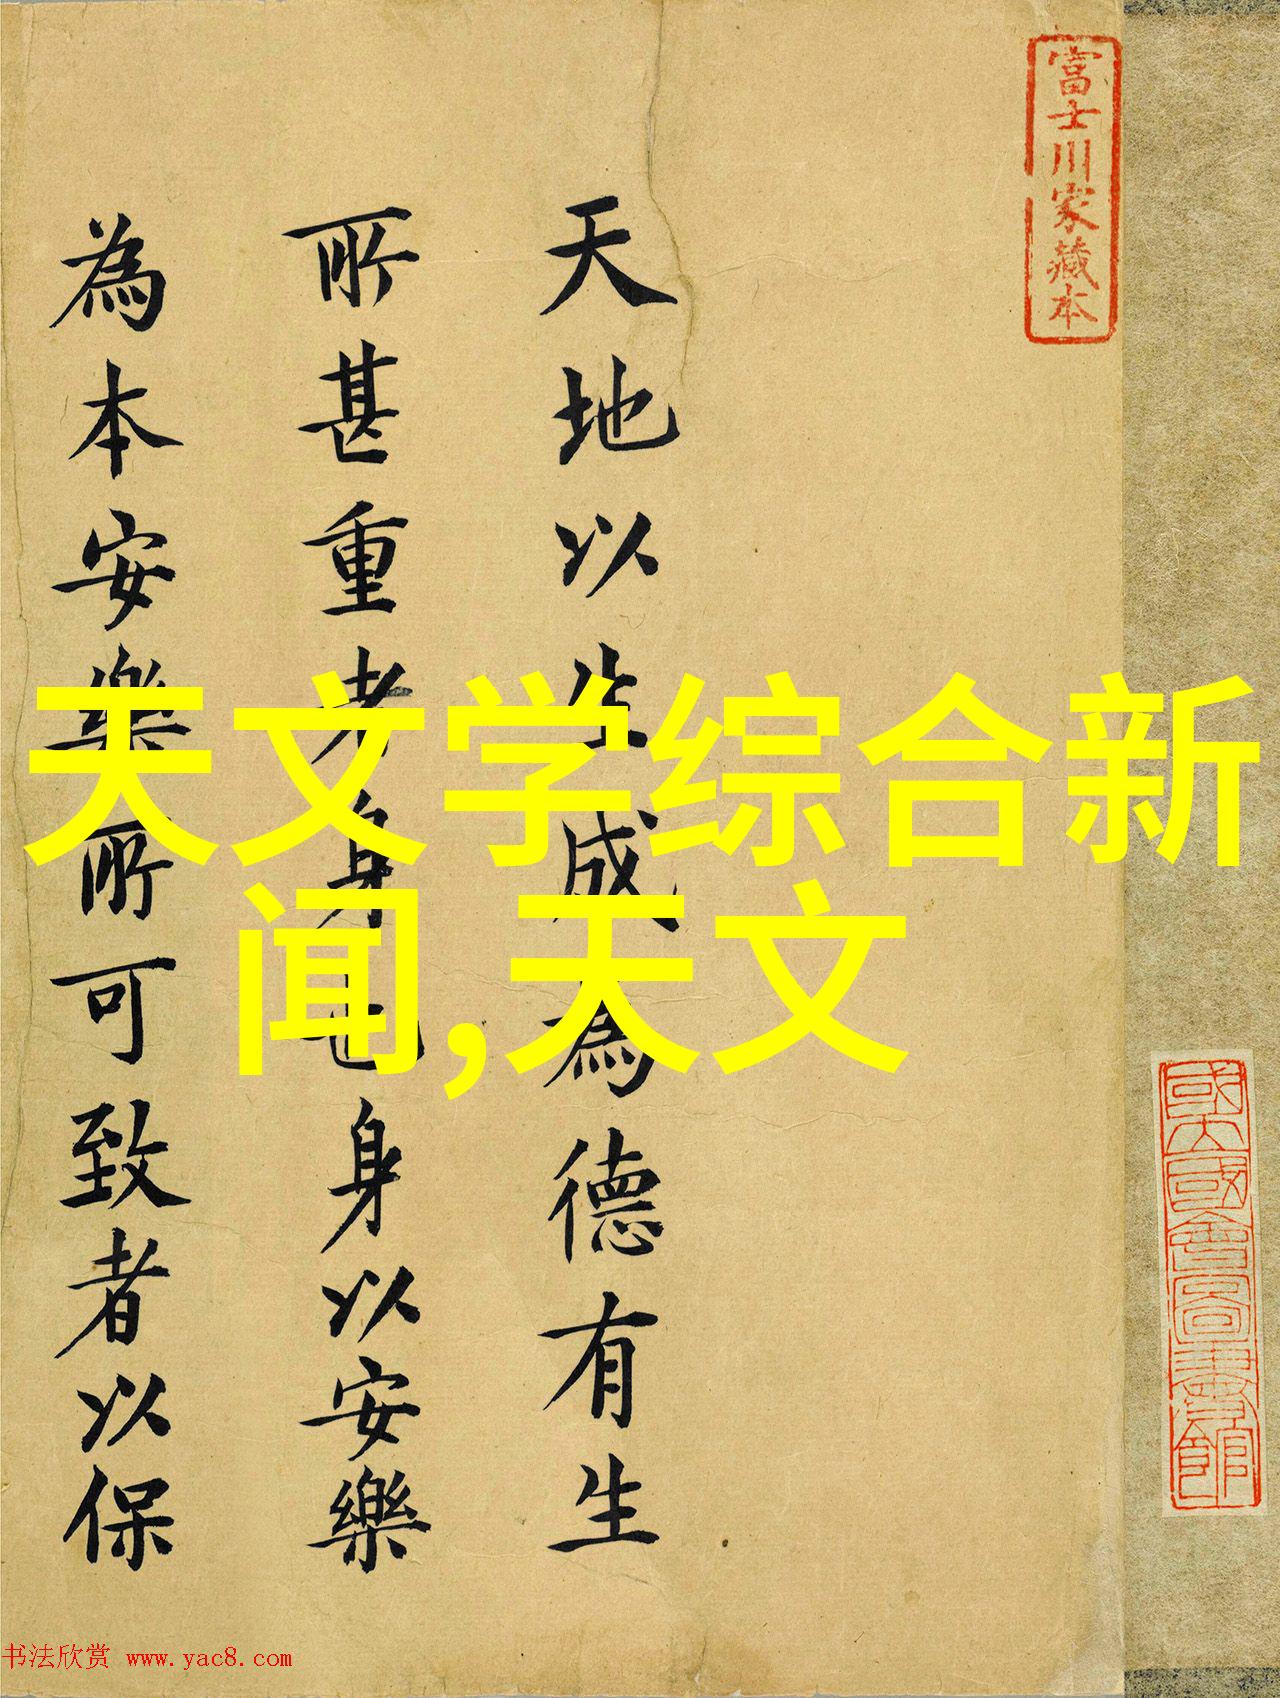 富士川家藏本
天地以生成為德有生
所甚重者身也身以安樂
為本安樂所可致者以保
天文学综合新
闻,天文
国立国会图書館
书法欣赏 www.yac8.com